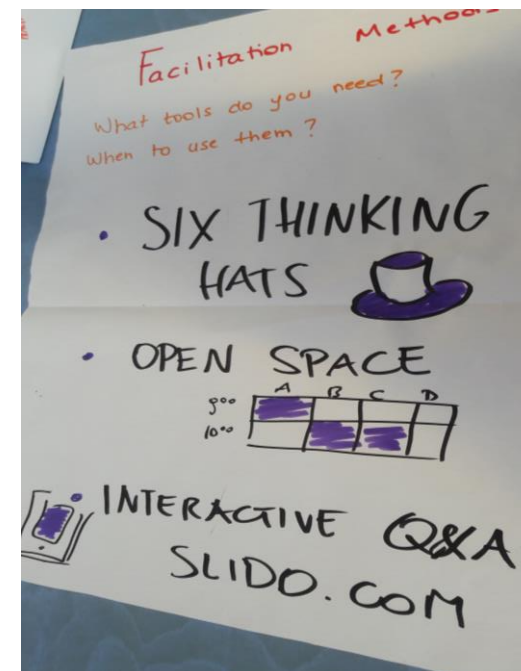 Facilitation Methods
What tools do you need?
When to use them?
• SIX THINKING
HATS
• OPEN SPACE
A B C D
9⁰⁰
10⁰⁰
• INTERACTIVE Q&A
SLIDO.COM